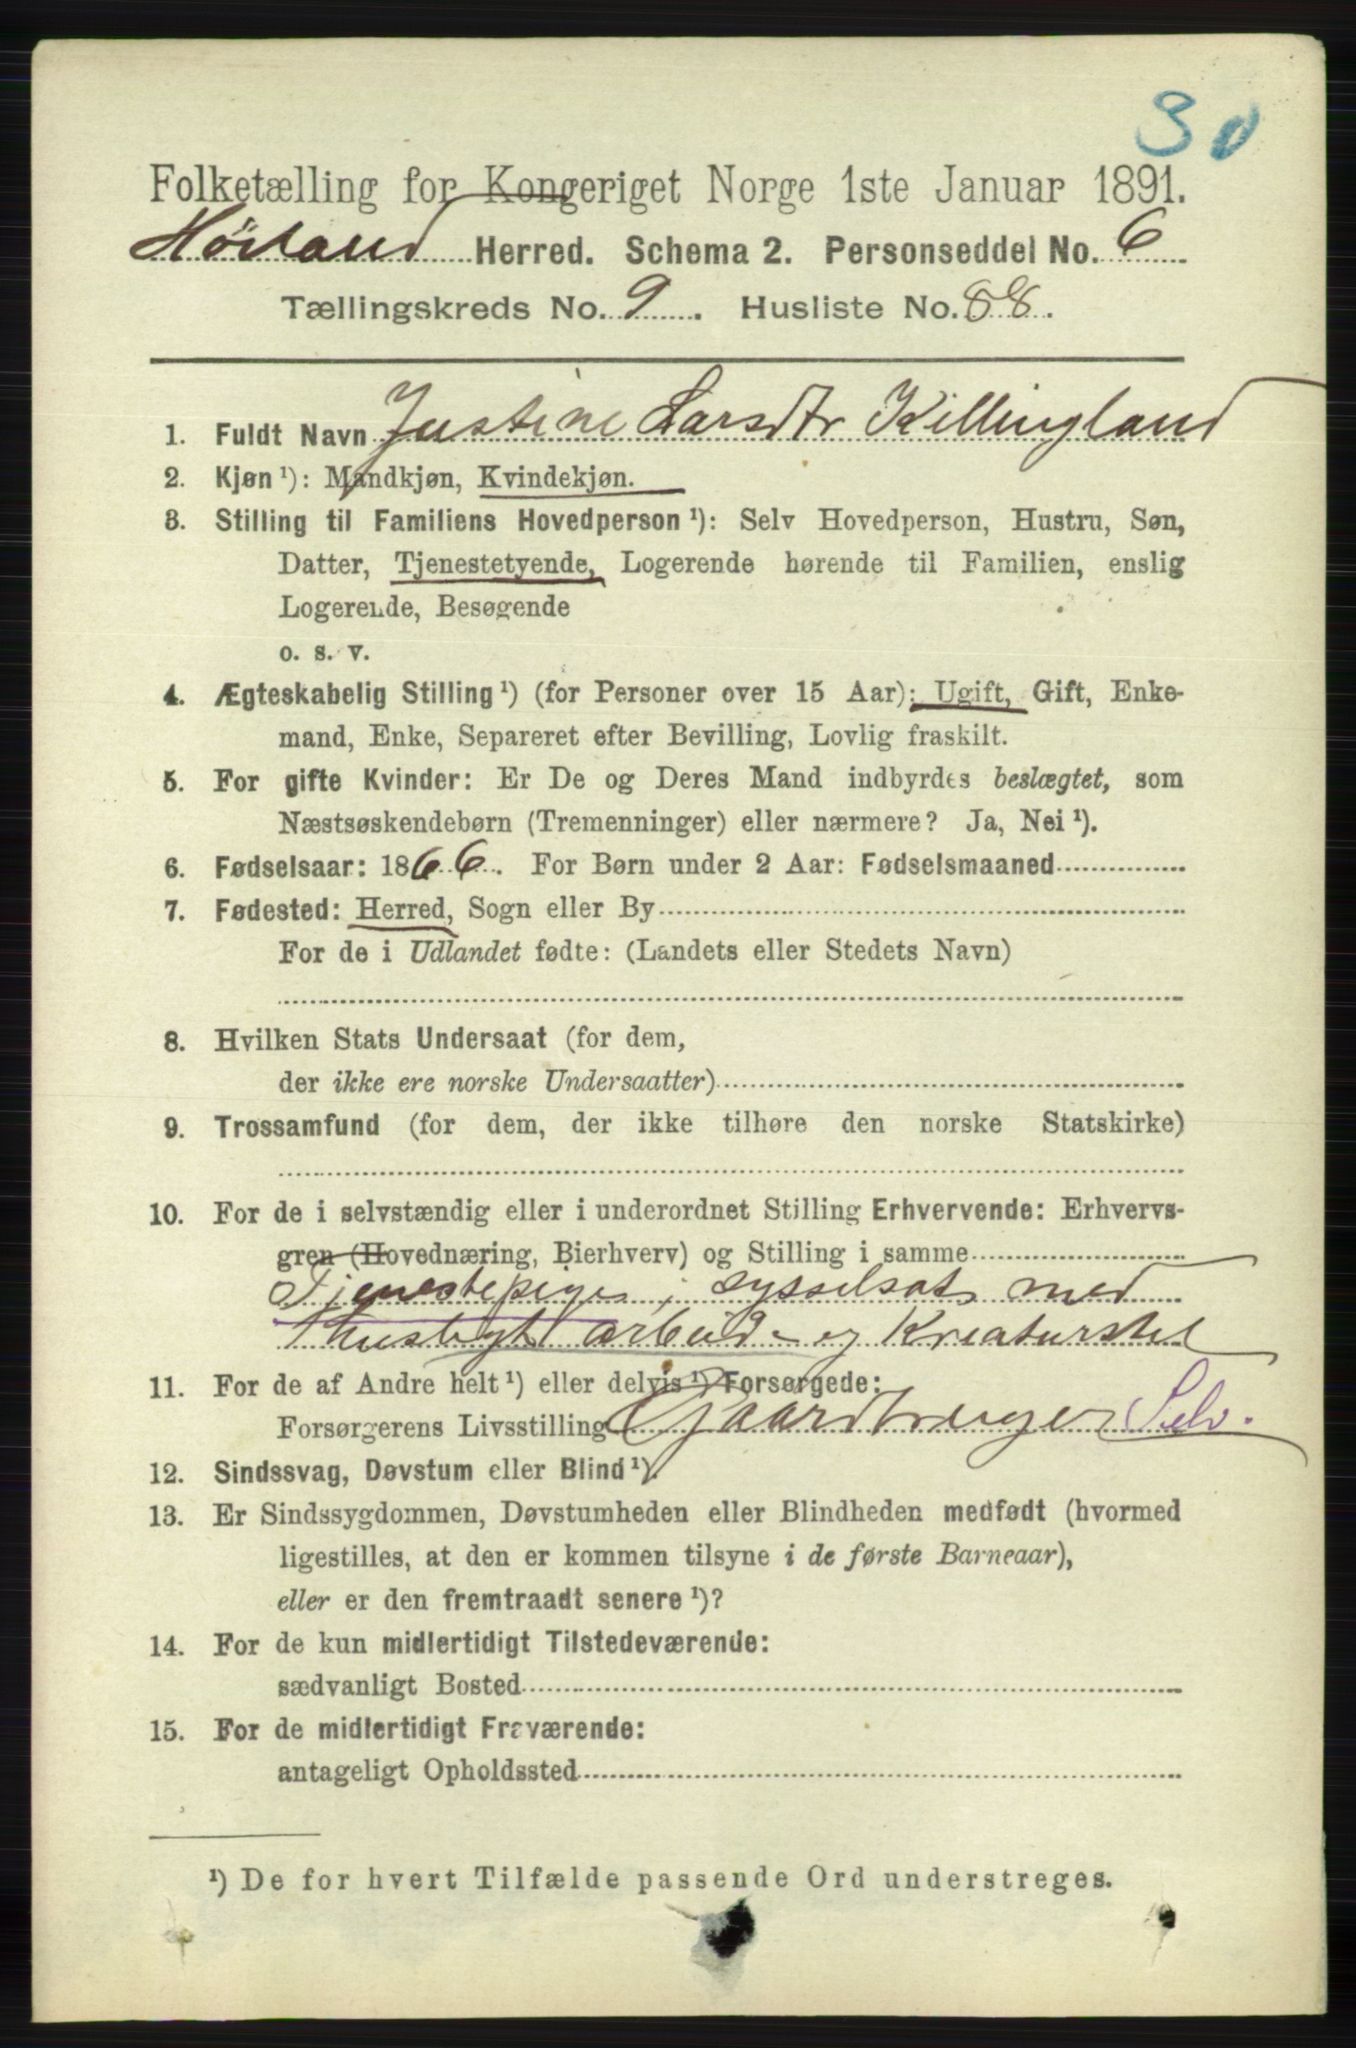 30
Folketælling for Kongeriget Norge 1ste Januar 1891.
Høiland Herred. Schema 2. Personseddel No. 6
Tællingskreds No. 9. Husliste No. 88.
1. Fuldt Navn Justine Larsdtr Killingland
2. Kjøn ¹): Mandkjøn, Kvindekjøn.
3. Stilling til Familiens Hovedperson ¹): Selv Hovedperson, Hustru, Søn,
Datter, Tjenestetyende, Logerende hørende til Familien, enslig
Logerende, Besøgende
o. s. v.
4. Ægteskabelig Stilling ¹) (for Personer over 15 Aar): Ugift, Gift, Enke-
mand, Enke, Separeret efter Bevilling, Lovlig fraskilt.
5. For gifte Kvinder: Er De og Deres Mand indbyrdes beslægtet, som
Næstsøskendebørn (Tremenninger) eller nærmere? Ja, Nei ¹).
6. Fødselsaar: 1866. For Børn under 2 Aar: Fødselsmaaned
7. Fødested: Herred, Sogn eller By
For de i Udlandet fødte: (Landets eller Stedets Navn)
8. Hvilken Stats Undersaat (for dem,
der ikke ere norske Undersaatter)
9. Trossamfund (for dem, der ikke tilhøre den norske Statskirke)
10. For de i selvstændig eller i underordnet Stilling Erhvervende: Erhvervs-
gren (Hovednæring, Bierhverv) og Stilling i samme
Tjenestepige, sysselsat med
husligt arbeid og Kreaturstel
11. For de af Andre helt ¹) eller delvis ¹) Forsørgede:
Forsørgerens Livsstilling Gaardbruger Selv.
12. Sindssvag, Døvstum eller Blind ¹).
13. Er Sindssygdommen, Døvstumheden eller Blindheden medfødt (hvormed
ligestilles, at den er kommen tilsyne i de første Barneaar),
eller er den fremtraadt senere ¹)?
14. For de kun midlertidigt Tilstedeværende:
sædvanligt Bosted
15. For de midlertidigt Fraværende:
antageligt Opholdssted
¹) De for hvert Tilfælde passende Ord understreges.